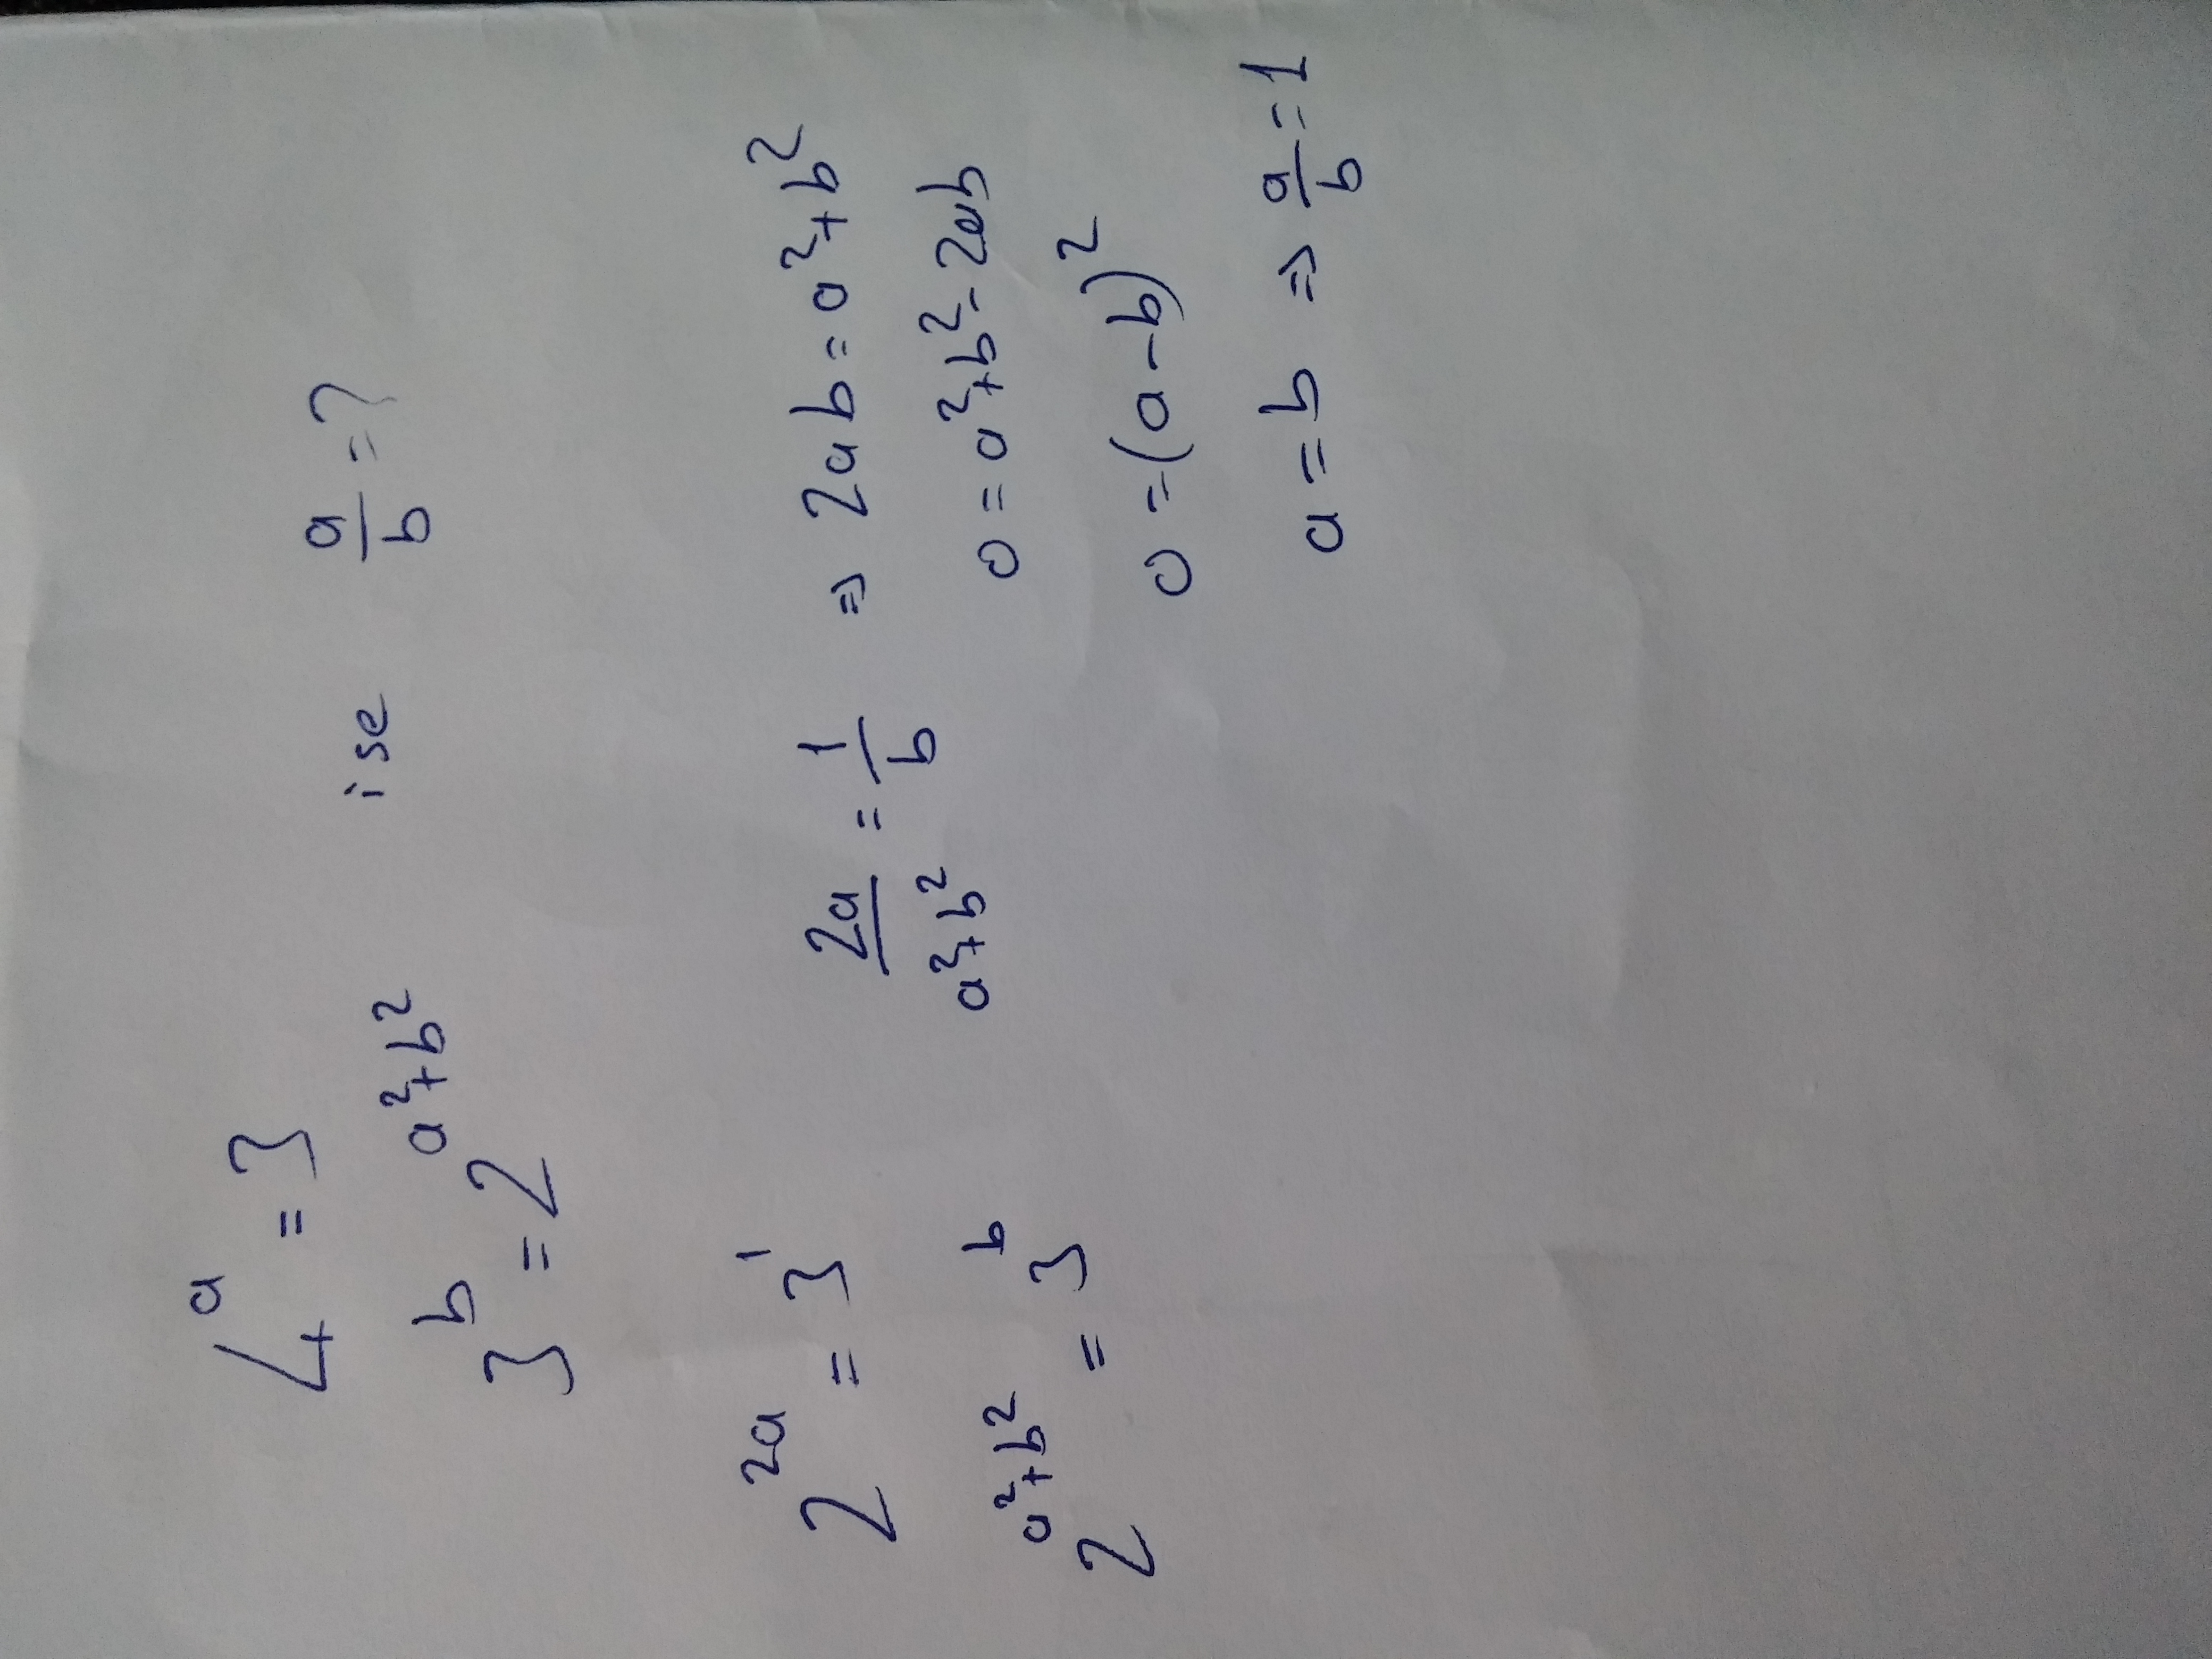 4^a = 3
3^b = 2^(a²+b²) ise a/b = ?
2^(2a) = 3^1
2^(a²+b²) = 3^b
2a/(a²+b²) = 1/b ⇒ 2ab = a²+b²
0 = a²+b²-2ab
0 = (a-b)²
a = b ⇒ a/b = 1